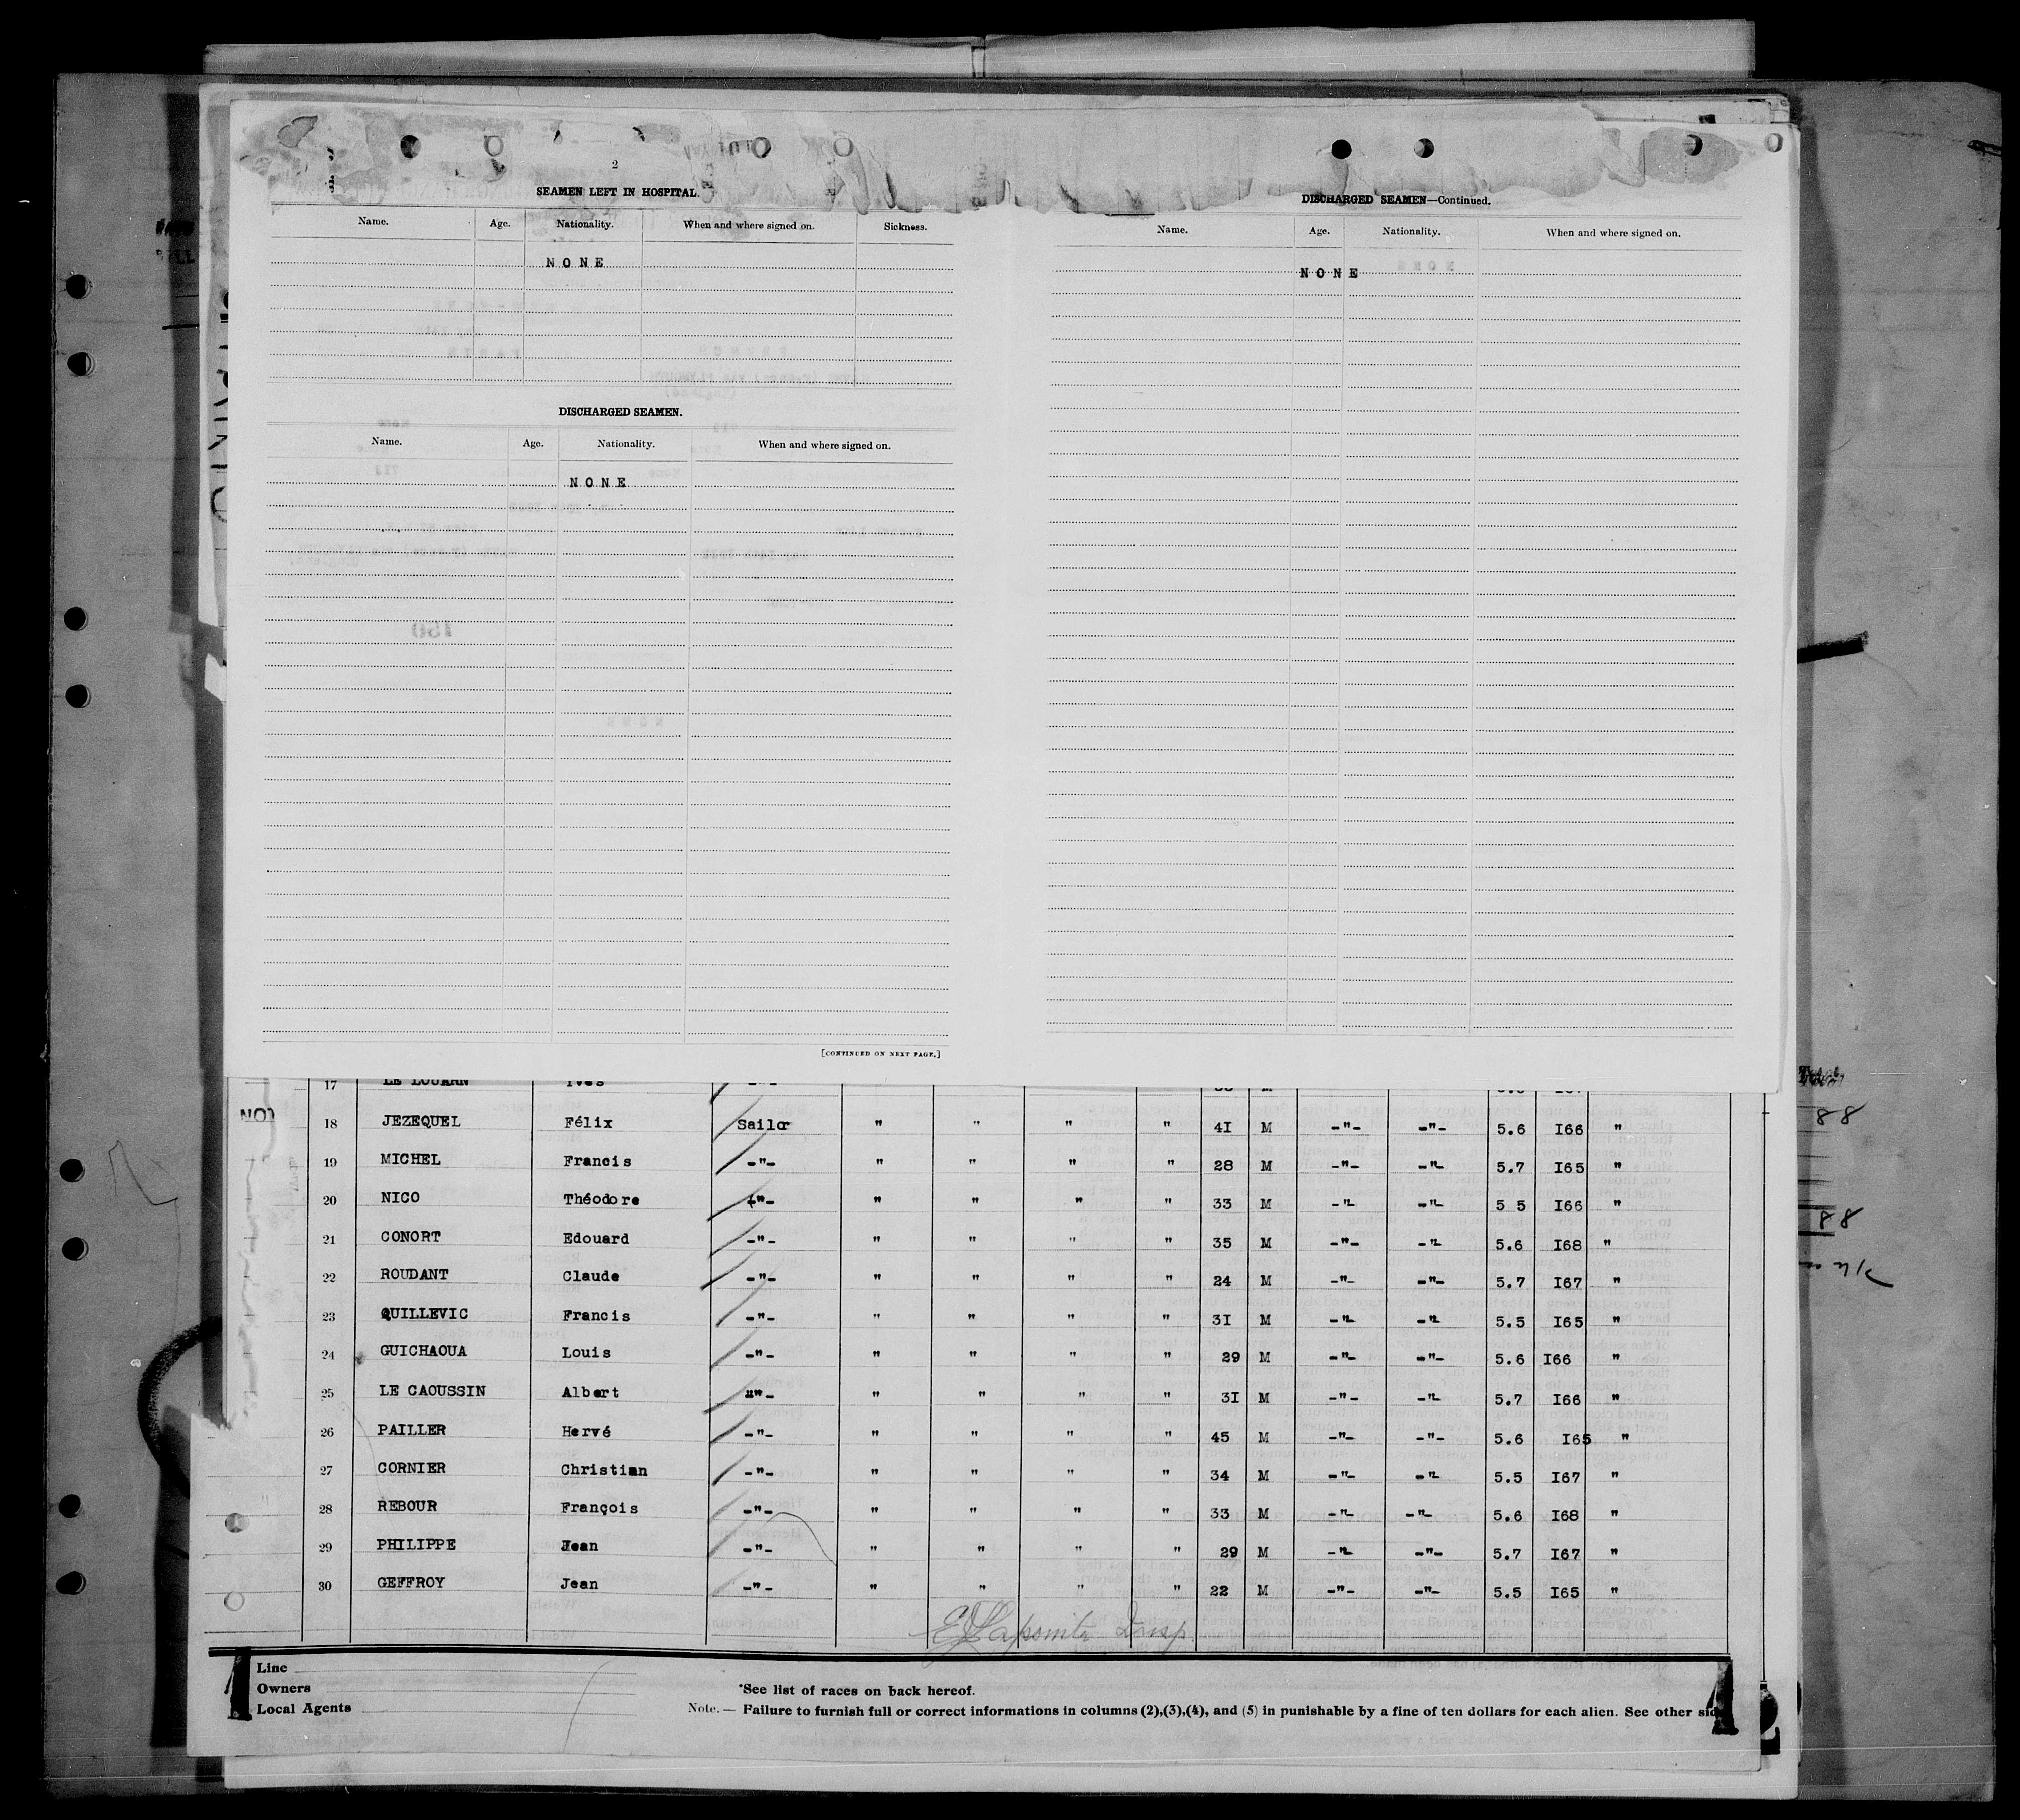 2
SEAMEN LEFT IN HOSPITAL.
Name. Age. Nationality. When and where signed on. Sickness.
NONE
DISCHARGED SEAMEN.
Name. Age. Nationality. When and where signed on.
NONE
[CONTINUED ON NEXT PAGE.]
DISCHARGED SEAMEN—Continued.
Name. Age. Nationality. When and where signed on.
NONE
17 LE LOUARN Ives
18 JEZEQUEL Félix Sailor " " " " 41 M -"- -"- 5.6 I66 "
19 MICHEL Francis -"- " " " " 28 M -"- -"- 5.7 I65 "
20 NICO Théodore -"- " " " " 33 M -"- -"- 5 5 I66 "
21 CONORT Edouard -"- " " " " 35 M -"- -"- 5.6 I68 "
22 ROUDANT Claude -"- " " " " 24 M -"- -"- 5.7 I67 "
23 QUILLEVIC Francis -"- " " " " 3I M -"- -"- 5.5 I65 "
24 GUICHAOUA Louis -"- " " " " 29 M -"- -"- 5.6 I66 "
25 LE CAOUSSIN Albert -"- " " " " 3I M -"- -"- 5.7 I66 "
26 PAILLER Hervé -"- " " " " 45 M -"- -"- 5.6 I65 "
27 CORNIER Christian -"- " " " " 34 M -"- -"- 5.5 I67 "
28 REBOUR François -"- " " " " 33 M -"- -"- 5.6 I68 "
29 PHILIPPE Jean -"- " " " " 29 M -"- -"- 5.7 I67 "
30 GEFFROY Jean -"- " " " " 22 M -"- -"- 5.5 I65 "
Line
Owners
Local Agents
*See list of races on back hereof.
Note.— Failure to furnish full or correct informations in columns (2),(3),(4), and (5) in punishable by a fine of ten dollars for each alien. See other
88
88